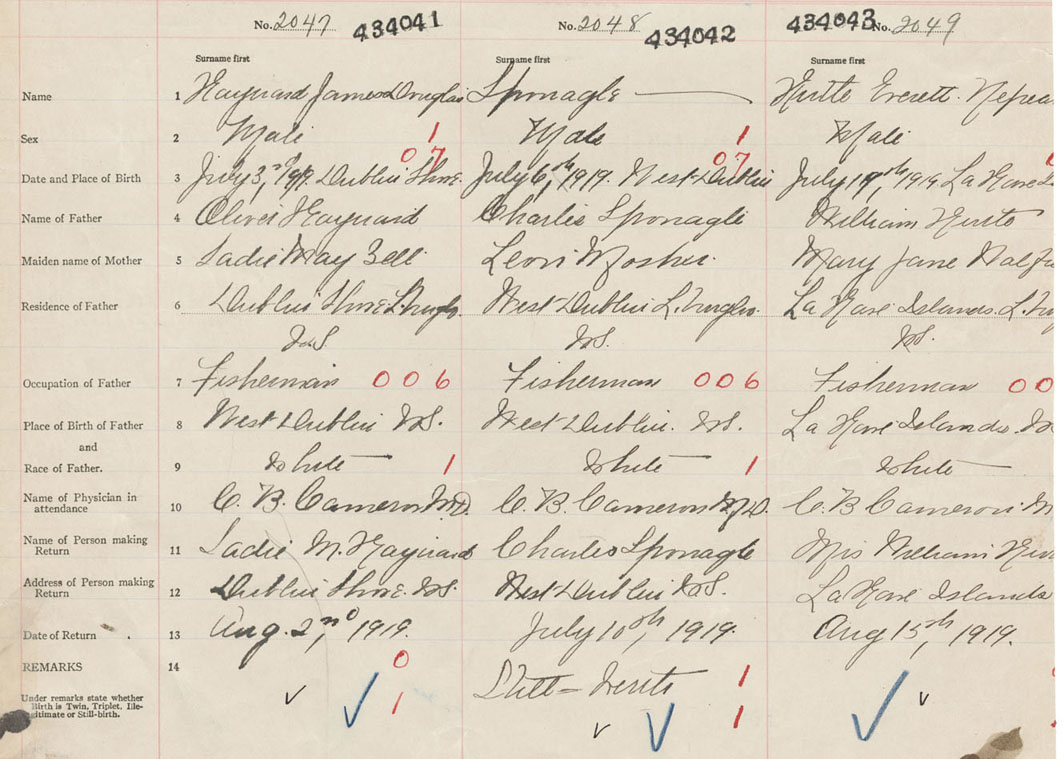 No. 2047 434041 No. 2048 434042 434043 No. 2049
Surname first Surname first Surname first
Name 1 James Douglas Sponagle Everett
Sex 2 Male 1 Male 1 Male
07 07
Date and Place of Birth 3 July 3, 1919. Dublin Shore. July 6th, 1919. West Dublin July 19th, 1919 La Have
Name of Father 4 Oliver Charlie Sponagle William
Maiden name of Mother 5 Sadie May Bell Leon Mosher. Mary Jane
Residence of Father 6 Dublin Shore West Dublin La Have Islands.
N.S. N.S. N.S.
Occupation of Father 7 Fisherman 006 Fisherman 006 Fisherman 00
Place of Birth of Father 8 West Dublin N.S. West Dublin. N.S. La Have Islands
and
Race of Father. 9 White 1 White 1 White
Name of Physician in
attendance 10 C. B. Cameron M.D. C. B. Cameron M.D. C. B Cameron M
Name of Person making
Return 11 Sadie M. Charles Sponagle Mrs William
Address of Person making
Return 12 Dublin Shore. N.S. West Dublin N.S. La Have Islands
Date of Return 13 Aug. 2nd, 1919. July 10th, 1919. Aug 15th, 1919.
REMARKS 14 0 Still - 1
Under remarks state whether
Birth is Twin, Triplet, Ille-
gitimate or Still-birth. 1 1